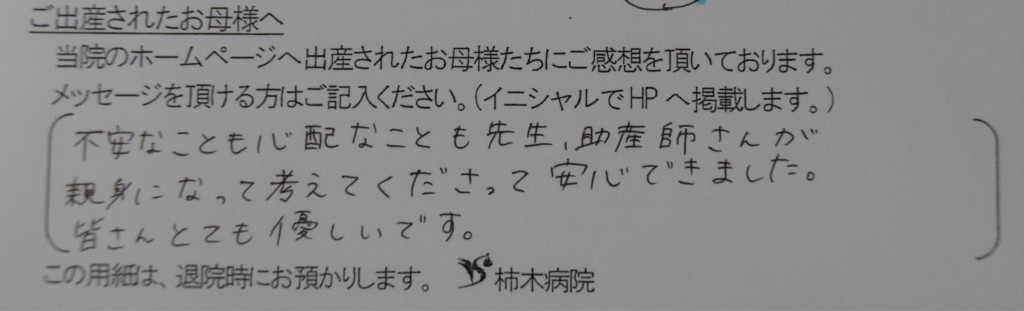 ご出産されたお母様へ
当院のホームページへ出産されたお母様たちにご感想を頂いております。
メッセージを頂ける方はご記入ください。(イニシャルでHPへ掲載します。)
不安なことも心配なことも先生、助産師さんが
親身になって考えてくださって安心できました。
皆さんとても優しいです。
この用細は、退院時にお預かりします。 柿木病院